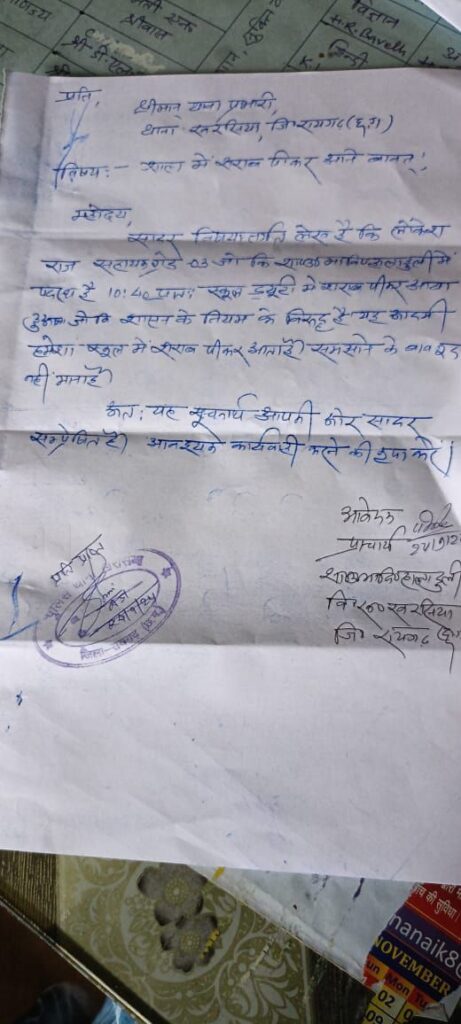 विज्ञान
हिन्दी
प्रति,
श्रीमान थाना प्रभारी,
थाना खरसिया, जि. रायगढ (छ.ग)
विषय:- शाला में शराब पीकर आने बाबत्!
महोदय,
सादर विषयान्तर्गत लेख है कि लोकेश
राज सहायक ग्रेड 03 जो कि
पदस्थ है 10:40 प्रातः स्कूल ड्यूटी में शराब पीकर आया
हुआ जो कि शासन के नियम के विरूद्ध है यह आदमी
हमेशा स्कूल में शराब पीकर आता है। समझाने के बावजूद
नहीं मानता है।
अतः यह सूचनार्थ आपकी ओर सादर
सम्प्रेषित है। आवश्यक कार्यवाही करने की कृपा करें।
आवेदक
प्राचार्य
वि.ख. खरसिया
जि. रायगढ (छ.ग
प्रति प्राप्त
जिला-रायगढ़ (छ.ग.)
की सुविधा
manaik8
NOVEMBER
Sun Mon Tu
02
09